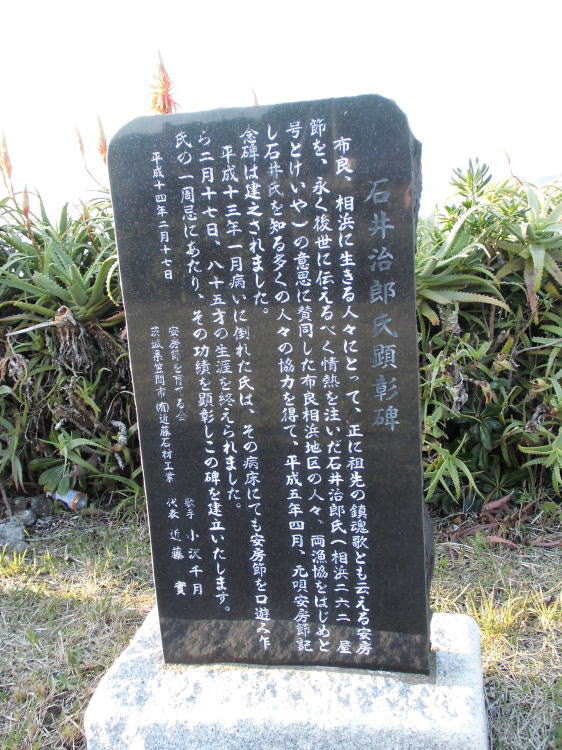 石井治郎氏顕彰碑
布良、相浜に生きる人々にとって、正に祖先の鎮魂歌とも云える安房
節を、永く後世に伝えるべく情熱を注いだ石井治郎氏(相浜二六二 屋
号とけいや)の意思に賛同した布良相浜地区の人々、両漁協をはじめと
し石井氏を知る多くの人々の協力を得て、平成五年四月、元唄安房節記
念碑は建立されました。
平成十三年一月病いに倒れた氏は、その病床にても安房節を口遊み作
ら二月十七日、八十五才の生涯を終えられました。
氏の一周忌にあたり、その功績を顕彰しこの碑を建立いたします。
平成十四年二月十七日
安房節を育てる会 歌手 小沢千月
茨城県笠間市 ㈲近藤石材工業 代表 近藤 實